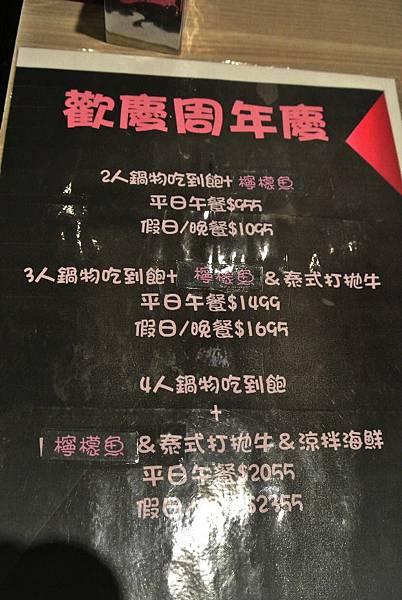 歡慶周年慶
2人鍋物吃到飽+ 檸檬魚
平日午餐$955
假日/晚餐$1095
3人鍋物吃到飽+ 檸檬魚 & 泰式打拋牛
平日午餐$1499
假日/晚餐$1695
4人鍋物吃到飽
+
檸檬魚 & 泰式打拋牛 & 涼拌海鮮
平日午餐$2055
假日/ $2355